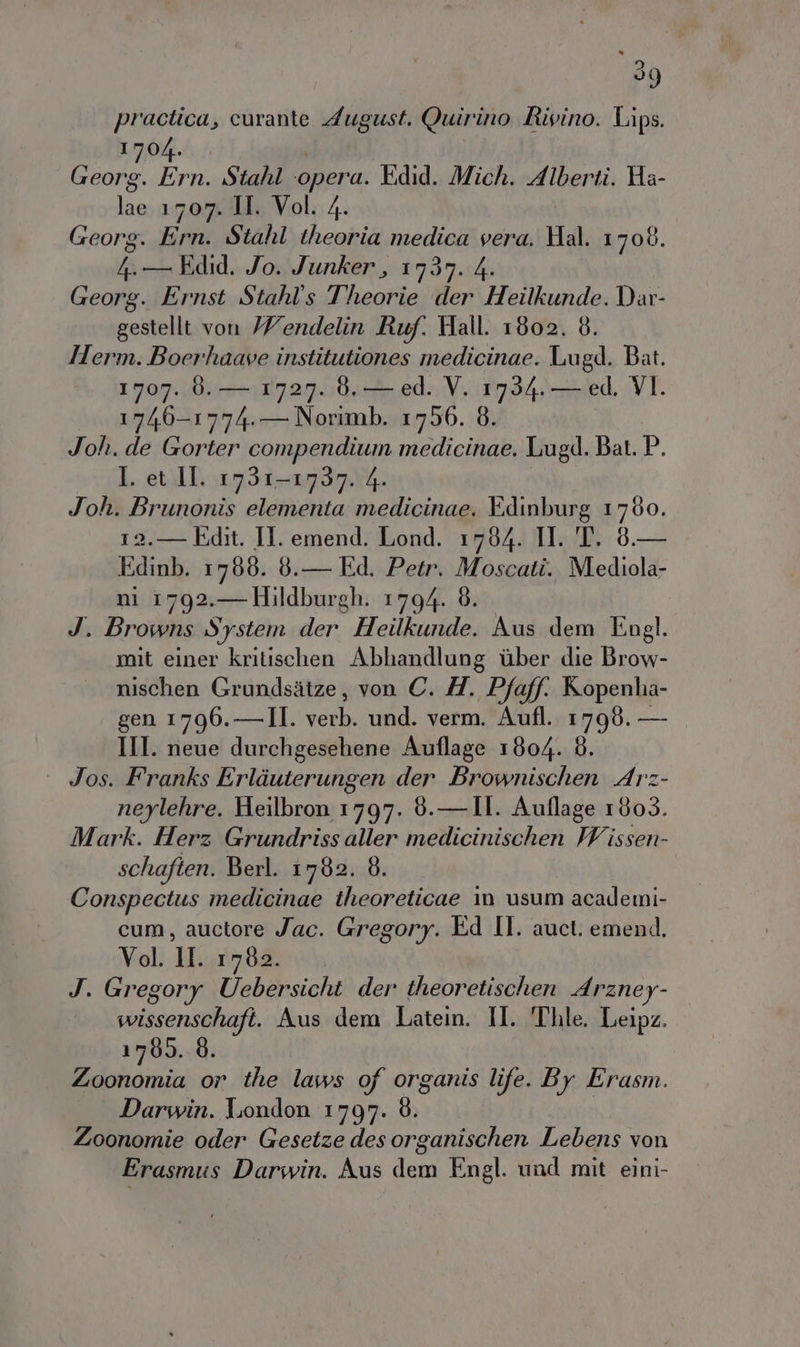 39
practica, curante August. Quirino Rivino. Lips.
1704.
Georg. Ern. Stahl opera. Edid. Mich. Alberti. Ha-
lae 1707. II. Vol. 4.
Georg. Ern. Stahl theoria medica vera. Hal. 1708.
4. — Edid. Jo. Junker, 1737. 4.
Georg. Ernst Stahl's Theorie der Heilkunde. Dar-
gestellt von Wendelin Ruf. Hall. 1802. 8.
Herm. Boerhaave institutiones medicinae. Lugd. Bat.
1707. 8. — 1727. 8. — ed. V. 1734. — ed. VI.
1746-1774. — Norimb. 1756. 8.
Joh. de Gorter compendium medicinae. Lugd. Bat. P.
I. et II. 1731-1737. 4.
Joh. Brunonis elementa medicinae. Edinburg 1780.
12. — Edit. II. emend. Lond. 1784. II. T. 8. —
Edinb. 1788. 8. — Ed. Petr. Moscati. Mediola-
ni 1792. — Hildburgh. 1794. 8.
J. Browns System der Heilkunde. Aus dem Engl.
mit einer kritischen Abhandlung über die Brow-
nischen Grundsätze, von C. H. Pfaff. Kopenha-
gen 1796. — II. verb. und. verm. Aufl. 1798. —
III. neue durchgesehene Auflage 1804. 8.
Jos. Franks Erläuterungen der Brownischen Arz-
neylehre. Heilbron 1797. 8. — II. Auflage 1803.
Mark. Herz Grundriss aller medicinischen Wissen-
schaften. Berl. 1782. 8.
Conspectus medicinae theoreticae in usum academi-
cum, auctore Jac. Gregory. Ed II. auct. emend.
Vol. II. 1782.
J. Gregory Uebersicht der theoretischen Arzney-
wissenschaft. Aus dem Latein. II. Thle. Leipz.
1785. 8.
Zoonomia or the laws of organis life. By Erasm.
Darwin. London 1797. 8.
Zoonomie oder Gesetze des organischen Lebens von
Erasmus Darwin. Aus dem Engl. und mit eini-